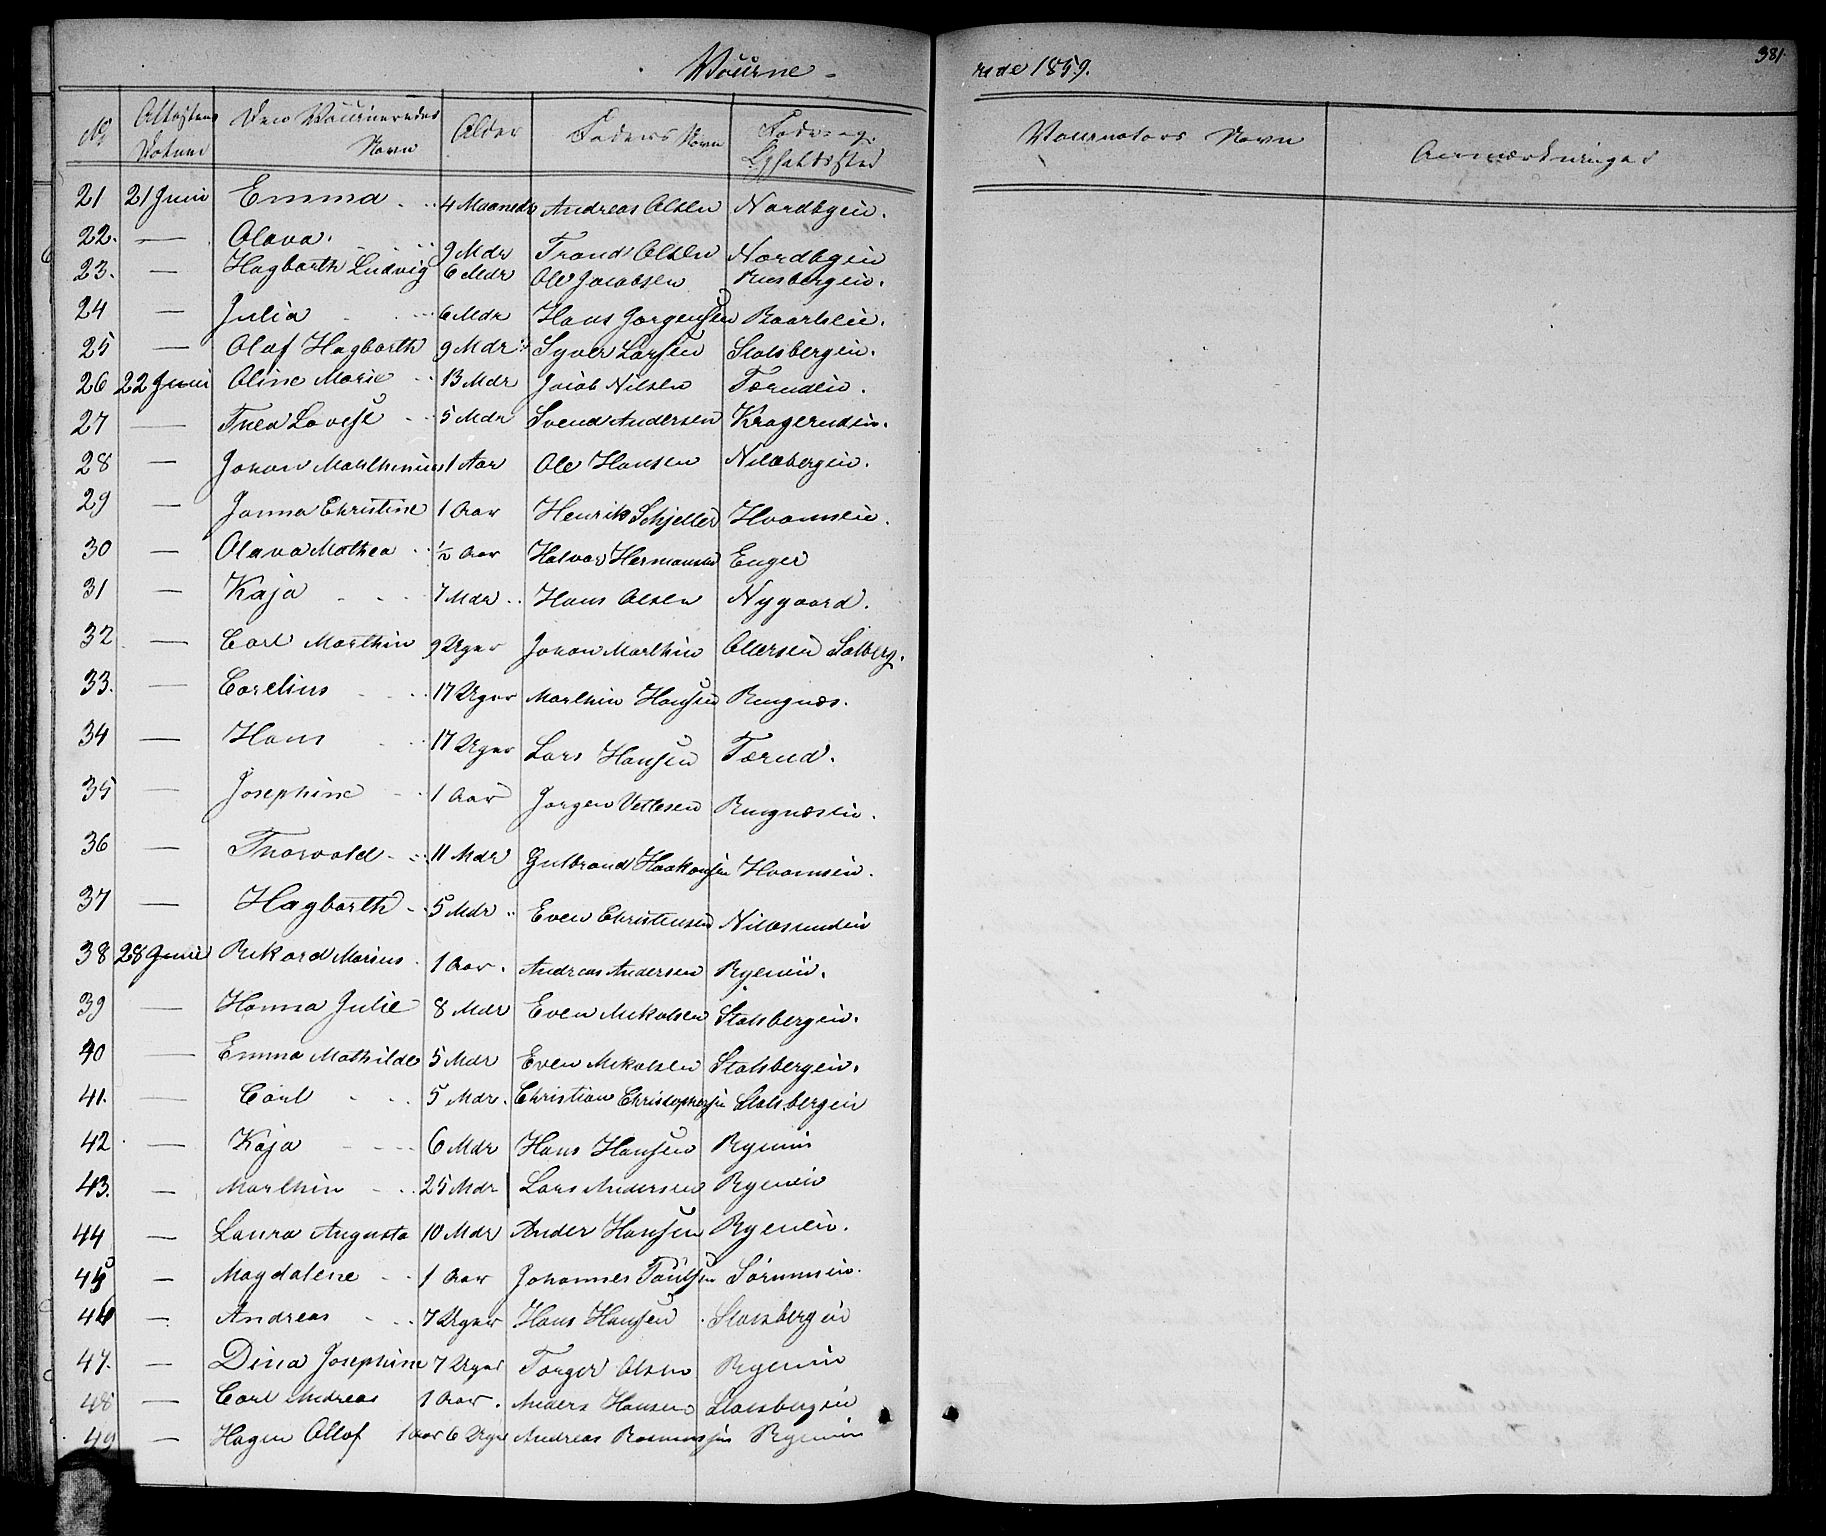 Vaccine-
rede 1859.
381
No Attestens Datum Den Vaccineredes Navn Alder Faders Navn Føde- og Opholdssted Vaccinators Navn Anmærkninger
21 21 Juni Emma 4 Maaneder Andreas Olsen Nordbyeie.
22. — Olava. 9 Mdr Trond Olsen Nordbyeie
23. — Hagbarth Ludvig 6 Mdr Ole Jacobsen
24 — Julia 6 Mdr Hans Jørgensen
25 — Olaf Hagbarth 9 Mdr Syver Larsen Stalsbergeie.
26 22 Juni Oline Marie 13 Mdr Jacob Nilsen Tærudeie.
27 — Thea Lovise 5 Mdr Svend Andersen Kragerudeie.
28 — Johan Marthinius 1 Aar Ole Hansen Nilsbergeie.
29 — Janna Christine 1 Aar Henrik Schjeller Hvamseie.
30 — Olava Mathea ½ Aar Halvor Hermansen Enger
31 — Kaja 7 Mdr Hans Olsen Nygaard.
32 — Carl Marthin 9 Uger Johan Marthin Ottersen Solberg.
33. — Carelius 17 Uger Marthin Hansen Ringnæs.
34 — Hans 17 Uger Lars Hansen Tærud.
35 — Josephine 1 Aar Jørgen Vetlesen Ringnæseie.
36 — Thorvald 11 Mdr Gulbrand Haakonsen Hvamseie.
37 — Hagbarth 5 Mdr Even Christensen
38 28 Juni Rikard Marius 1 Aar. Andreas Andersen Ryeneie.
39 — Hanna Julie 8 Mdr Even Mikalsen Stalsbergeie.
40 — Emma Mathilde 5 Mdr Even Mikalsen Stalsbergeie.
41. — Carl 5 Mdr. Christian Christophersen Stalsbergeie
42 — Kaja 6 Mdr Hans Hansen Ryeneie
43. — Marthin 25 Mdr Lars Andersen Ryeneie
44 — Laura Augusta 10 Mdr Anders Hansen Ryeneie.
45 — Magdalene 1 Aar Johannes Paulsen Sørumseie.
46 — Andreas 7 Uger Hans Hansen Stalsbergeie
47. — Dina Josephine 7 Uger Torger Olsen Ryeneie
48 — Carl Andreas 1 Aar. Anders Hansen Stalsbergeie
49 — Hagen Olaf 1 Aar 6 Uger Andreas Rasmussen Ryeneie